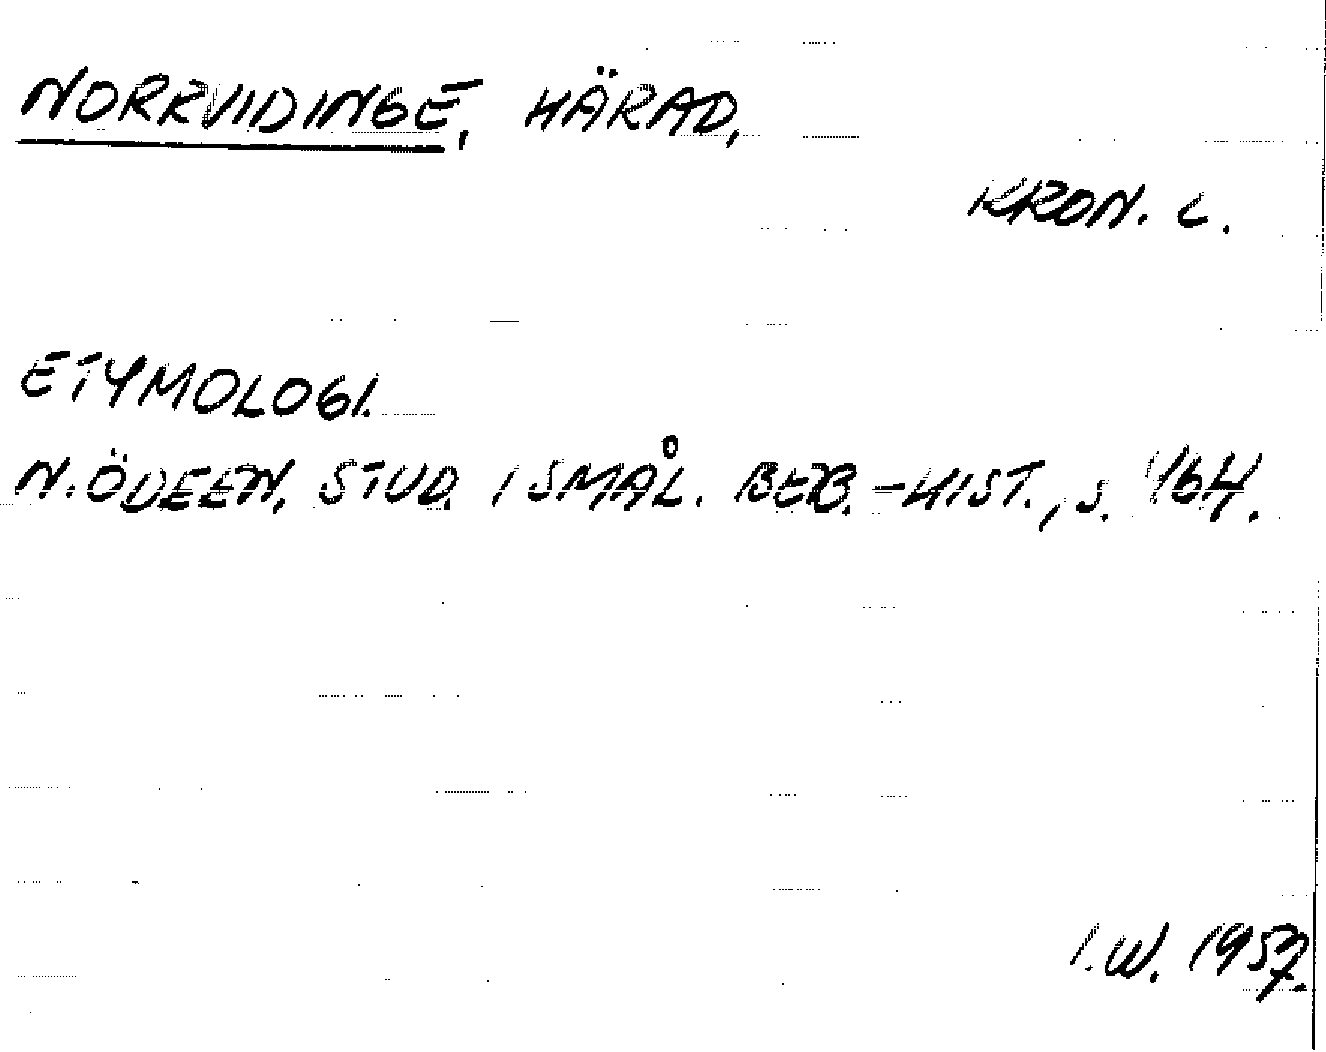 NORRVIDINGE, HÄRAD,
KRON. L.
ETYMOLOGI.
N. ÖDEEN, STUD. I SMÅL. BEB.-HIST., S. 164.
I.W. 1957.